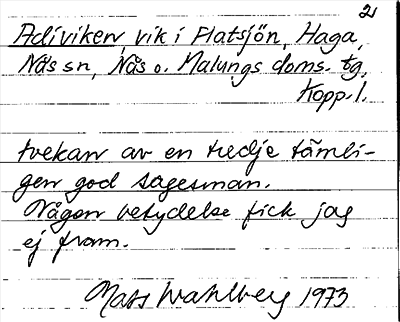 2
Adiviken, vik i Flatsjön, Haga,
Nås sn, Nås o. Malungs doms. tg,
Kopp. l.
tvekan av en tredje tämli-
gen god sagesman.
Någon betydelse fick jag
ej fram.
Mats Wahlberg 1973